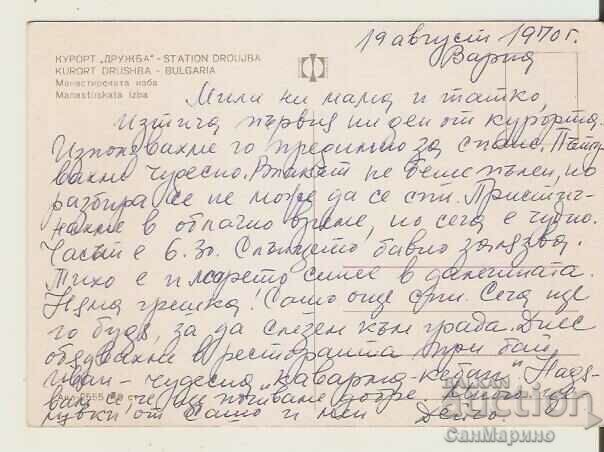 19 август 1970 г.
Варна
КУРОРТ „ДРУЖБА" - STATION DROUJBA
KURORT DRUSHBA - BULGARIA
Манастирската изба
Manastirskata izba
Мили ни мама и татко,
Изтича първия ни ден от курорта.
Използвахме го предимно за спане. Пъту-
вахме чудесно. Влакът не беше пълен, но
разбира се не може да се спи. Пристиг-
нахме в облачно време, но сега е чудно.
Часът е 6.30. Слънцето бавно залязва.
Тихо е и морето синее в далечината.
Няма грешка! Сашо още спи. Сега ще
го будя, за да слезем към града. Днес
обядвахме в ресторанта при бай
Иван - чудесна „каварма-кебап". Надя-
вам се че ще почиваме добре. Много це-
лувки от Сашо и мен